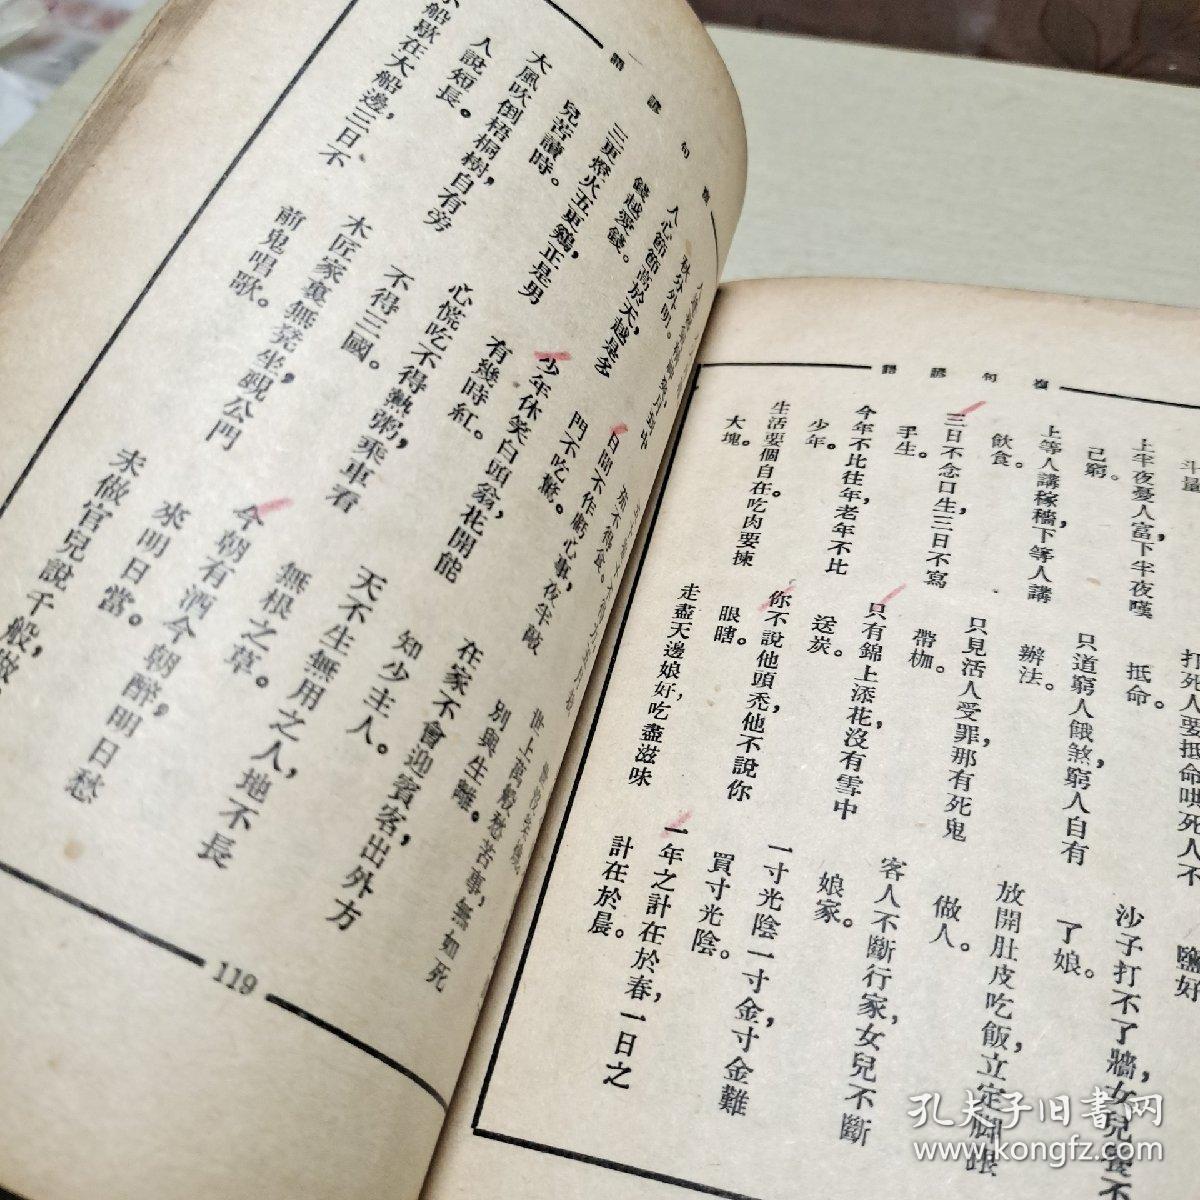 複句諺語
斗量
上半夜憂人富下半夜嘆
己窮。
上等人講稼穡下等人講
飲食。
三日不念口生三日不寫
手生。
今年不比往年老年不比
少年。
生活要個自在吃肉要揀
大塊。
打死人要抵命哄死人不
抵命。
只道窮人餓煞窮人自有
辦法。
只見活人受罪那有死鬼
帶枷。
只有錦上添花沒有雪中
送炭。
你不說他頭禿他不說你
眼瞎。
走盡天邊娘好吃盡滋味
鹽好
沙子打不了牆女兒養不
了娘。
放開肚皮吃飯立定脚跟
做人。
客人不斷行家女兒不斷
娘家。
一寸光陰一寸金寸金難
買寸光陰。
一年之計在於春一日之
計在於晨。
複句諺語
秋分外明。
人心節節高於天越是多
錢越愛錢。
三更燈火五更鷄正是男
兒苦讀時。
大風吹倒梧桐樹自有旁
人說短長。
小船歇在大船邊三日不
日間不作虧心事夜半敲
門不吃驚。
少年休笑白頭翁花開能
有幾時紅。
心慌吃不得熱粥乘車看
不得三國。
木匠家裏無凳坐觀公門
前鬼唱歌。
世上萬般愁苦事無如死
別與生離。
在家不會迎賓客出外方
知少主人。
天不生無用之人地不長
無根之草。
今朝有酒今朝醉明日愁
來明日當。
未做官兒說千般做
119
孔夫子旧书网
www.kongfz.com